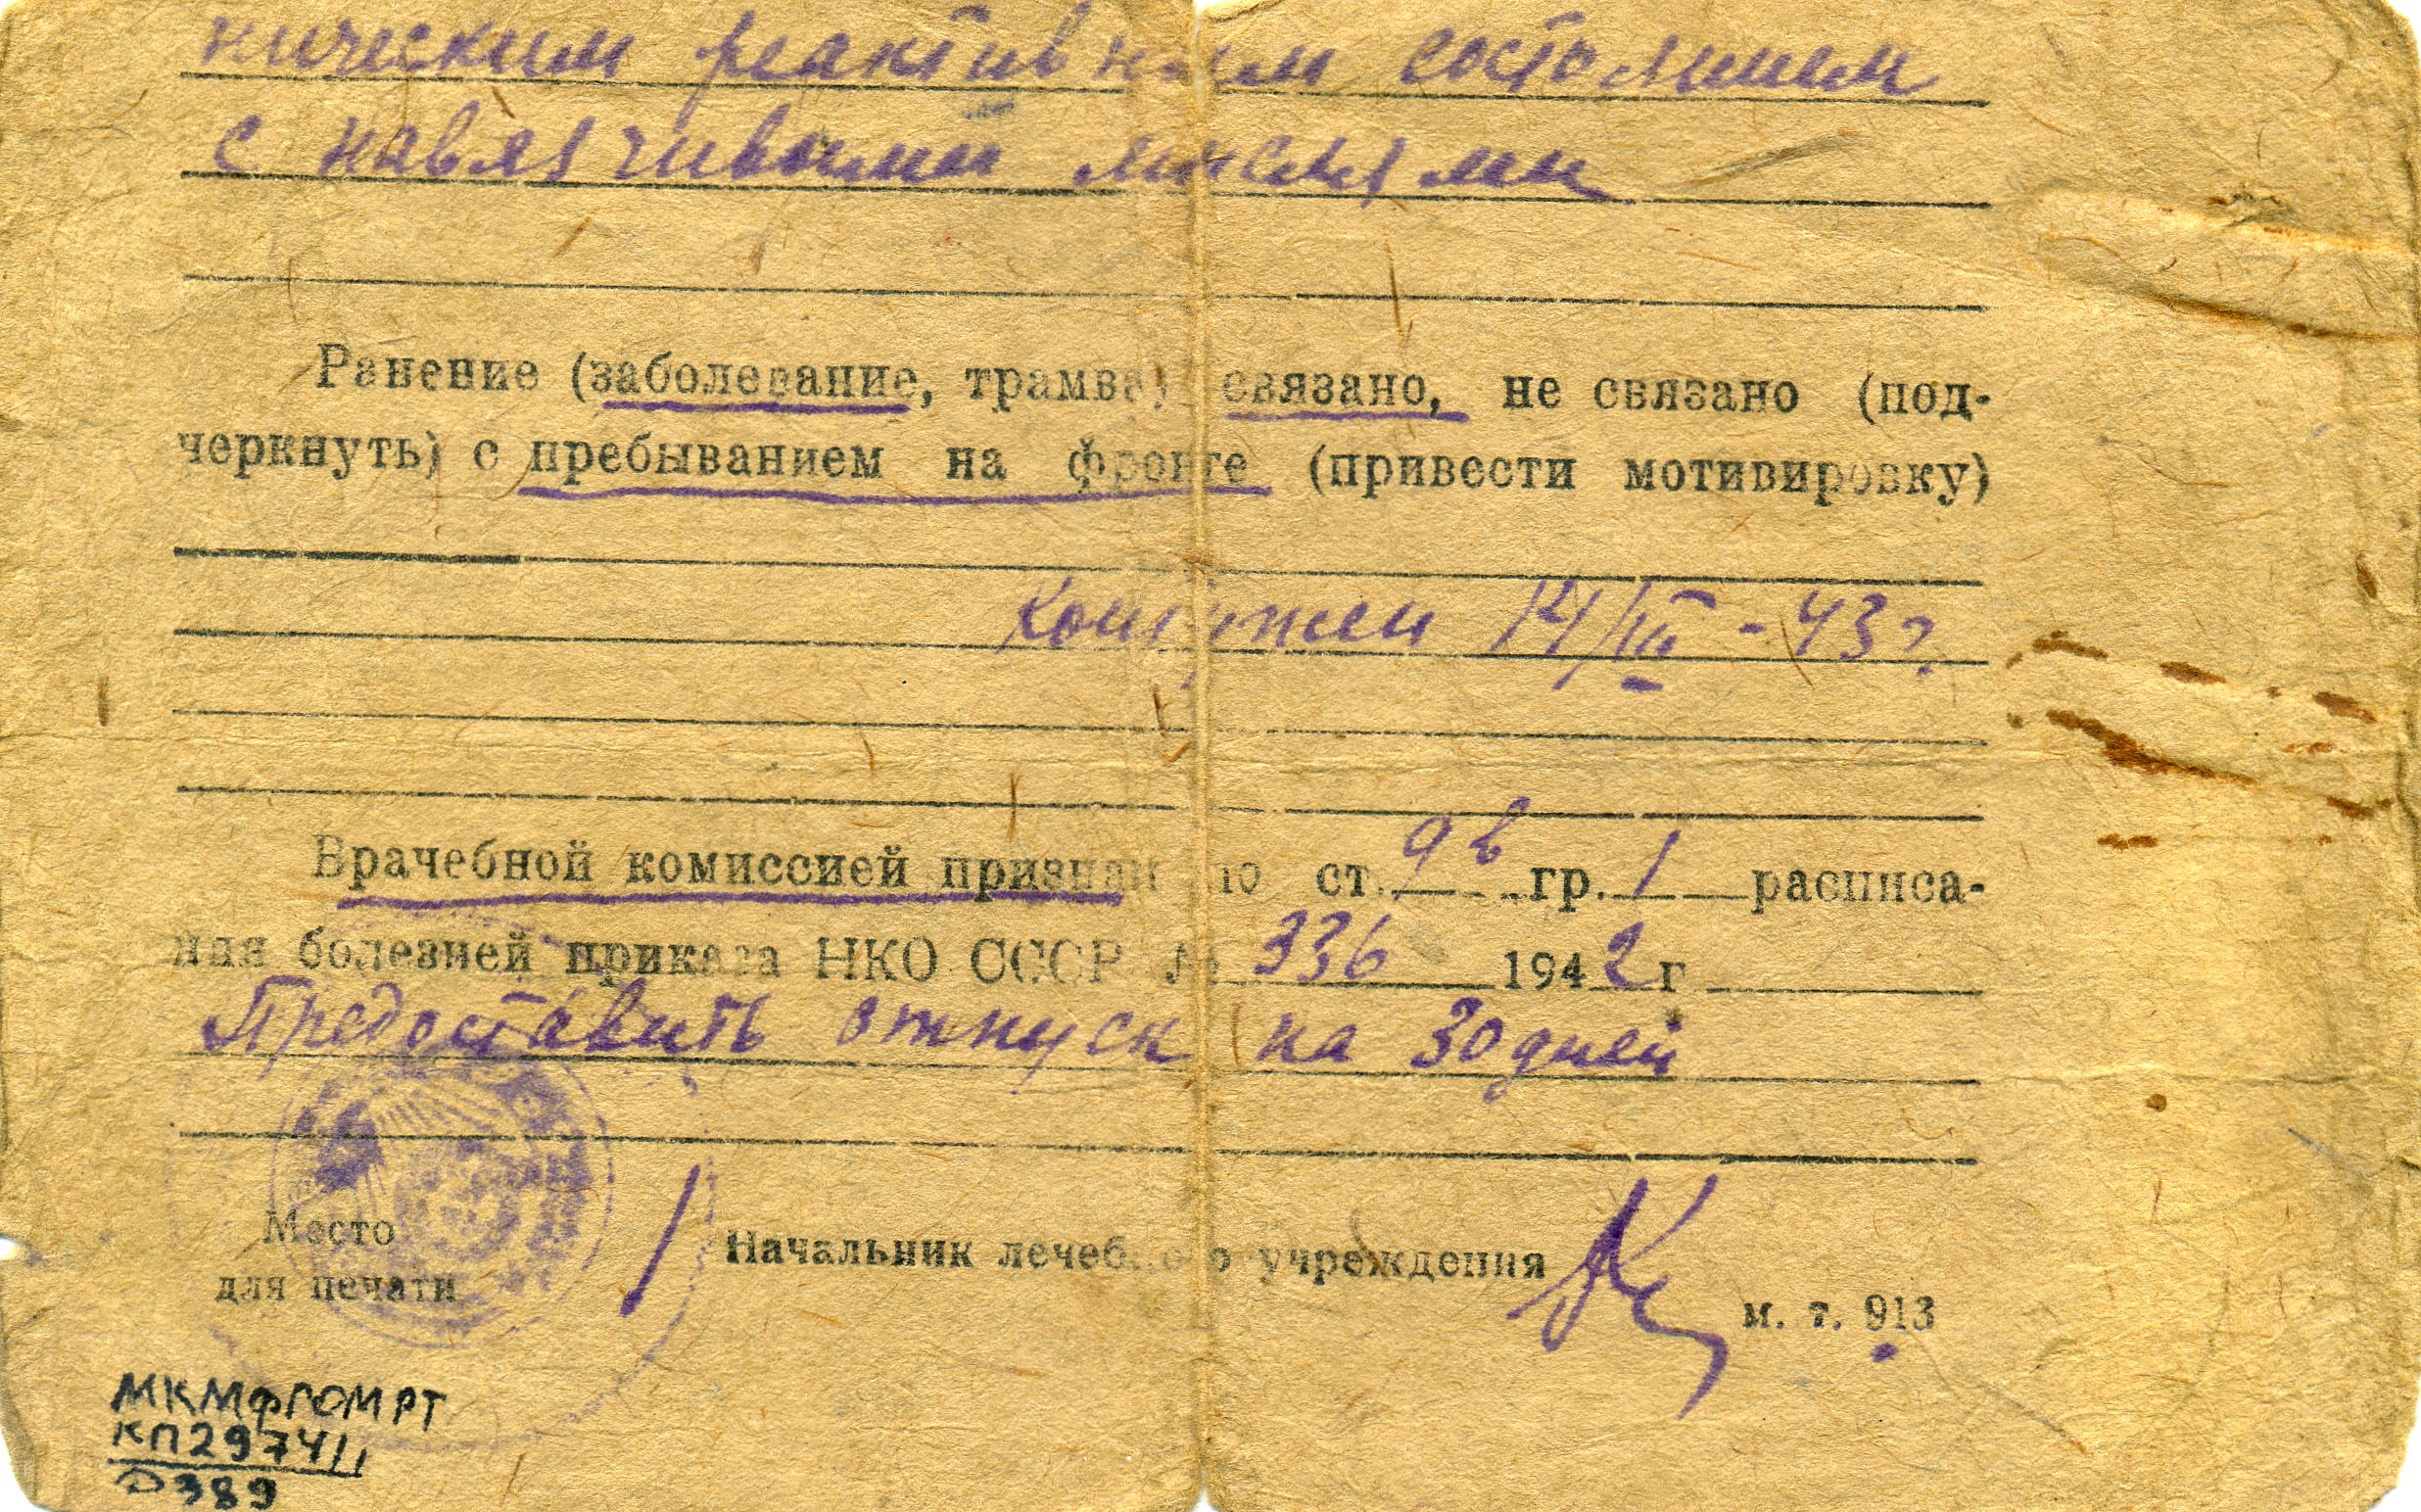 ническим реактивным состоянием
с навязчивыми мыслями
Ранение (заболевание, трамва) связано, не связано (под-
черкнуть) с пребыванием на фронте (привести мотивировку)
Контужен 14/III - 43 г.
Врачебной комиссией признан по ст. 9в гр. 1 расписа-
ния болезней приказа НКО СССР № 336 1942 г
Предоставить отпуск на 30 дней
Место
для печати
Начальник лечебного учреждения
м. т. 913
МКМФГОМРТ
КП29741/1
Д389